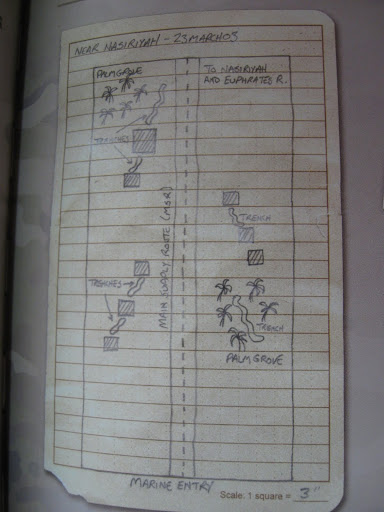 NEAR NASIRIYAH - 23MARCH03
PALMGROVE
TO NASIRIYAH
AND EUPHRATES R.
TRENCHES
MAIN SUPPLY ROUTE (MSR)
TRENCH
TRENCHES
TRENCH
PALMGROVE
MARINE ENTRY
Scale: 1 square = 3"